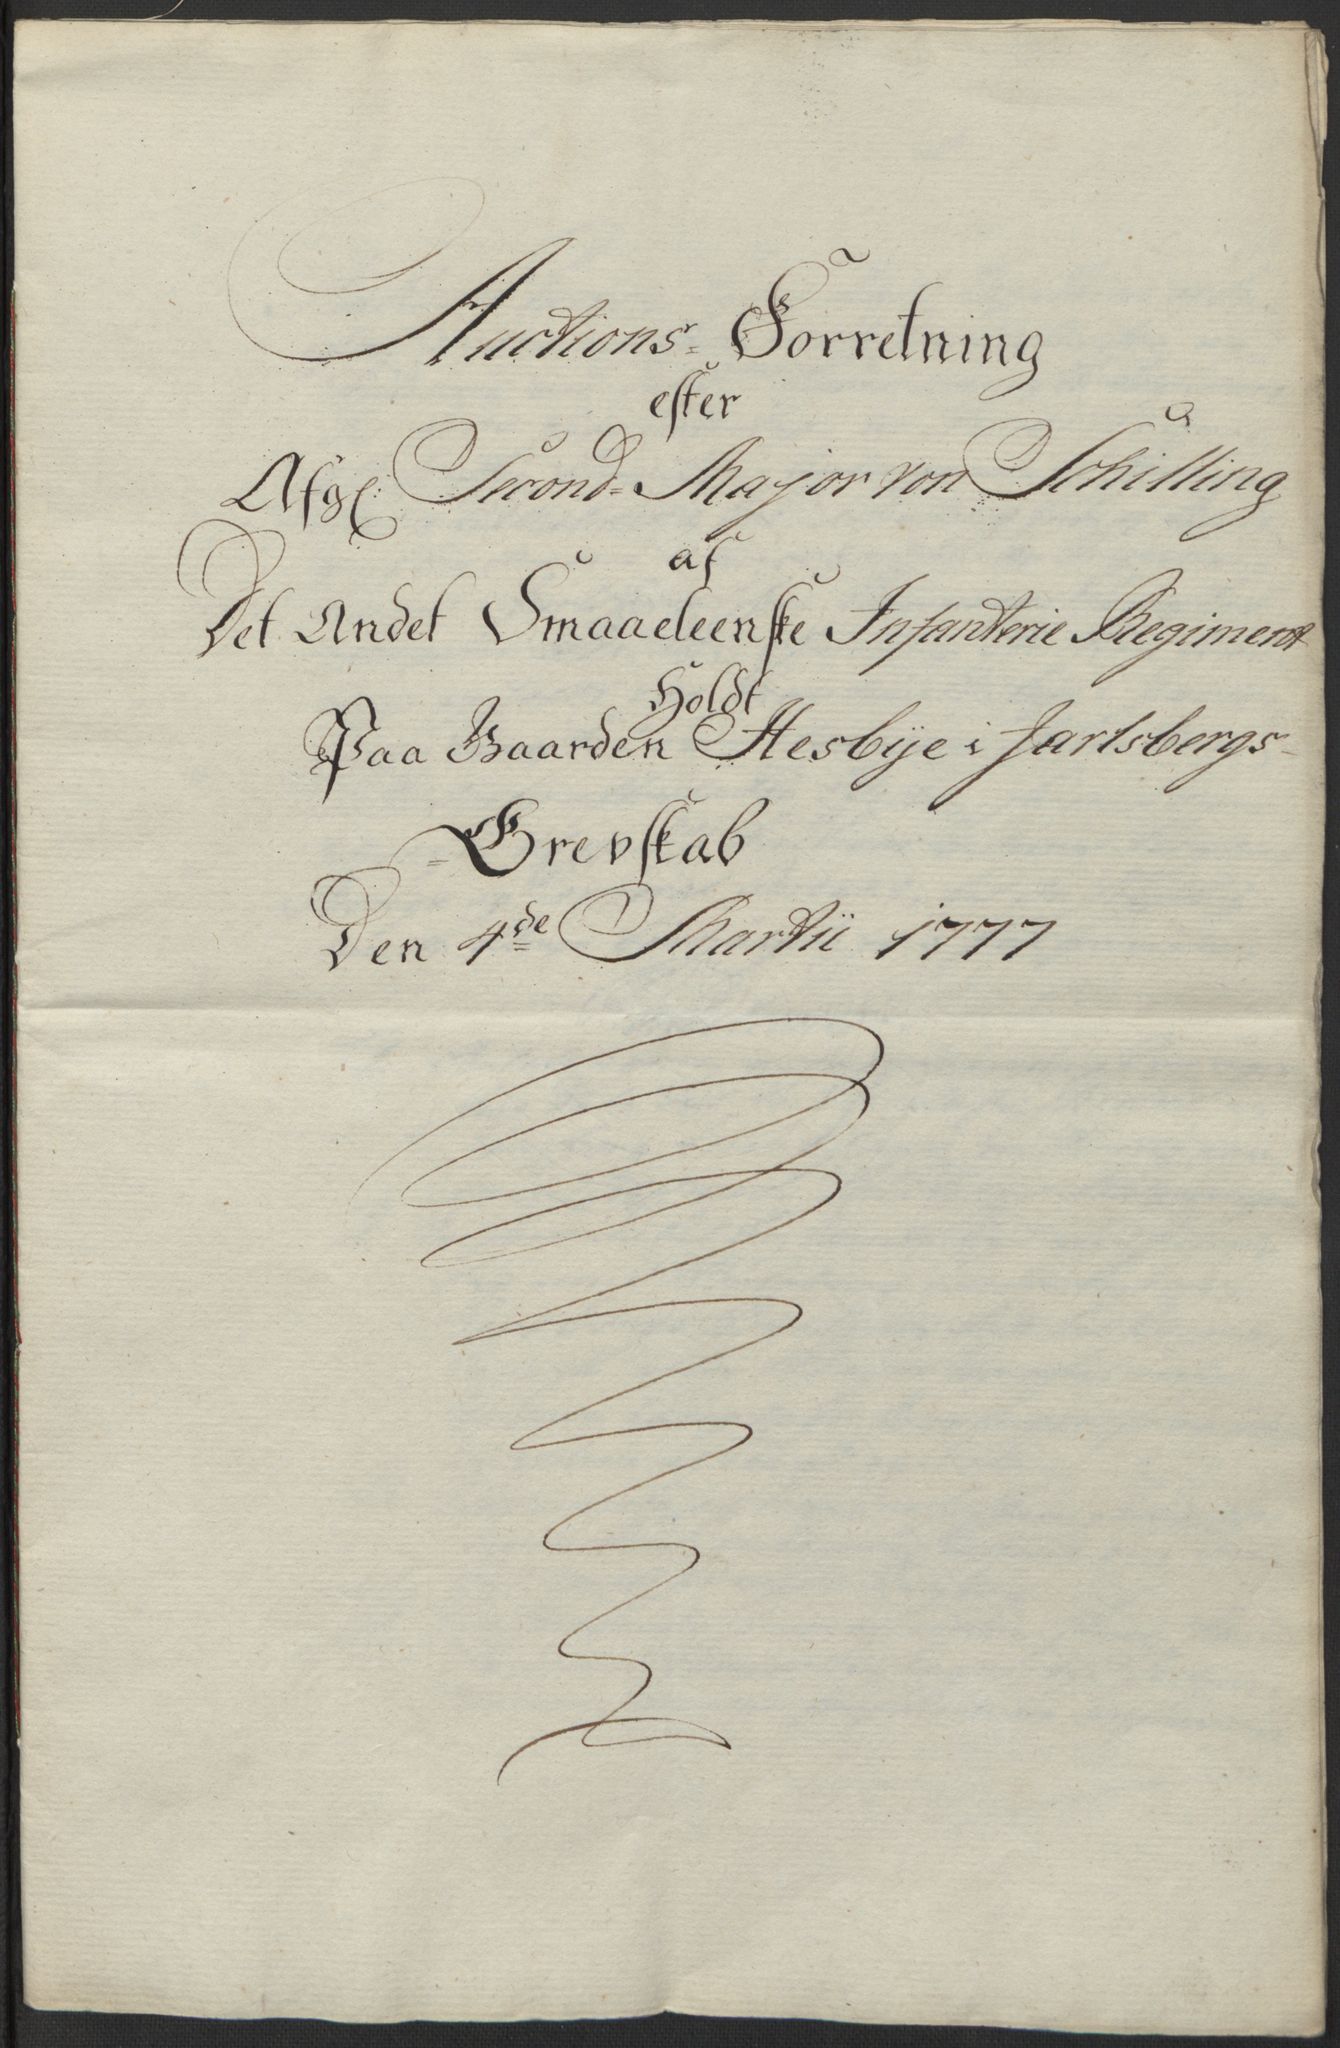 Auctions-Forretning
efter
Afg. Second-Major von Schilling
af
Det Andet Smaaeleenske Infanterie Regiment
Holdt
Paa Gaarden Hesbÿe i Jarlsbergs-
-Grevskab
Den 4de Martii 1777